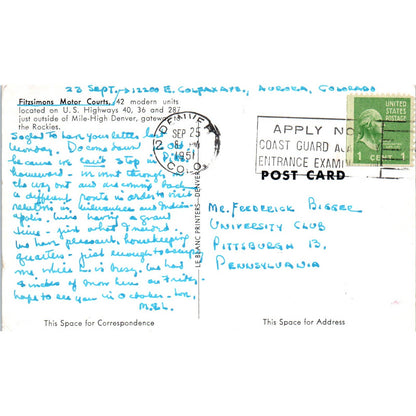 23 Sept. - 12200 E. Colfax Ave., Aurora, Colorado
Fitzsimons Motor Courts, 42 modern units
located on U.S. Highways 40, 36 and 287
just outside of Mile-High Denver, gateway
the Rockies.
So glad to have your letter last
Monday. Do come down
because we can't stop in
homeward - we went through on
the way out and are coming back
a different route in order to visit
relatives in Milwaukee and Indian-
apolis. We're having a grand
time - just what I needed.
We have pleasant, housekeeping
quarters - just enough to occupy
me while L. is busy. We had
4 inches of snow here on Friday-
hope to see you in October - Love,
M.B.L.
This Space for Correspondence
LE BLANC PRINTERS - DENVER
DENVER
2
SEP 25
PM
1951
COLO.
APPLY NO
COAST GUARD A
ENTRANCE EXAMI
UNITED STATES POSTAGE
1 CENT 1
POST CARD
Mr. Frederick Bigger
University Club
Pittsburgh 13.
Pennsylvania
This Space for Address